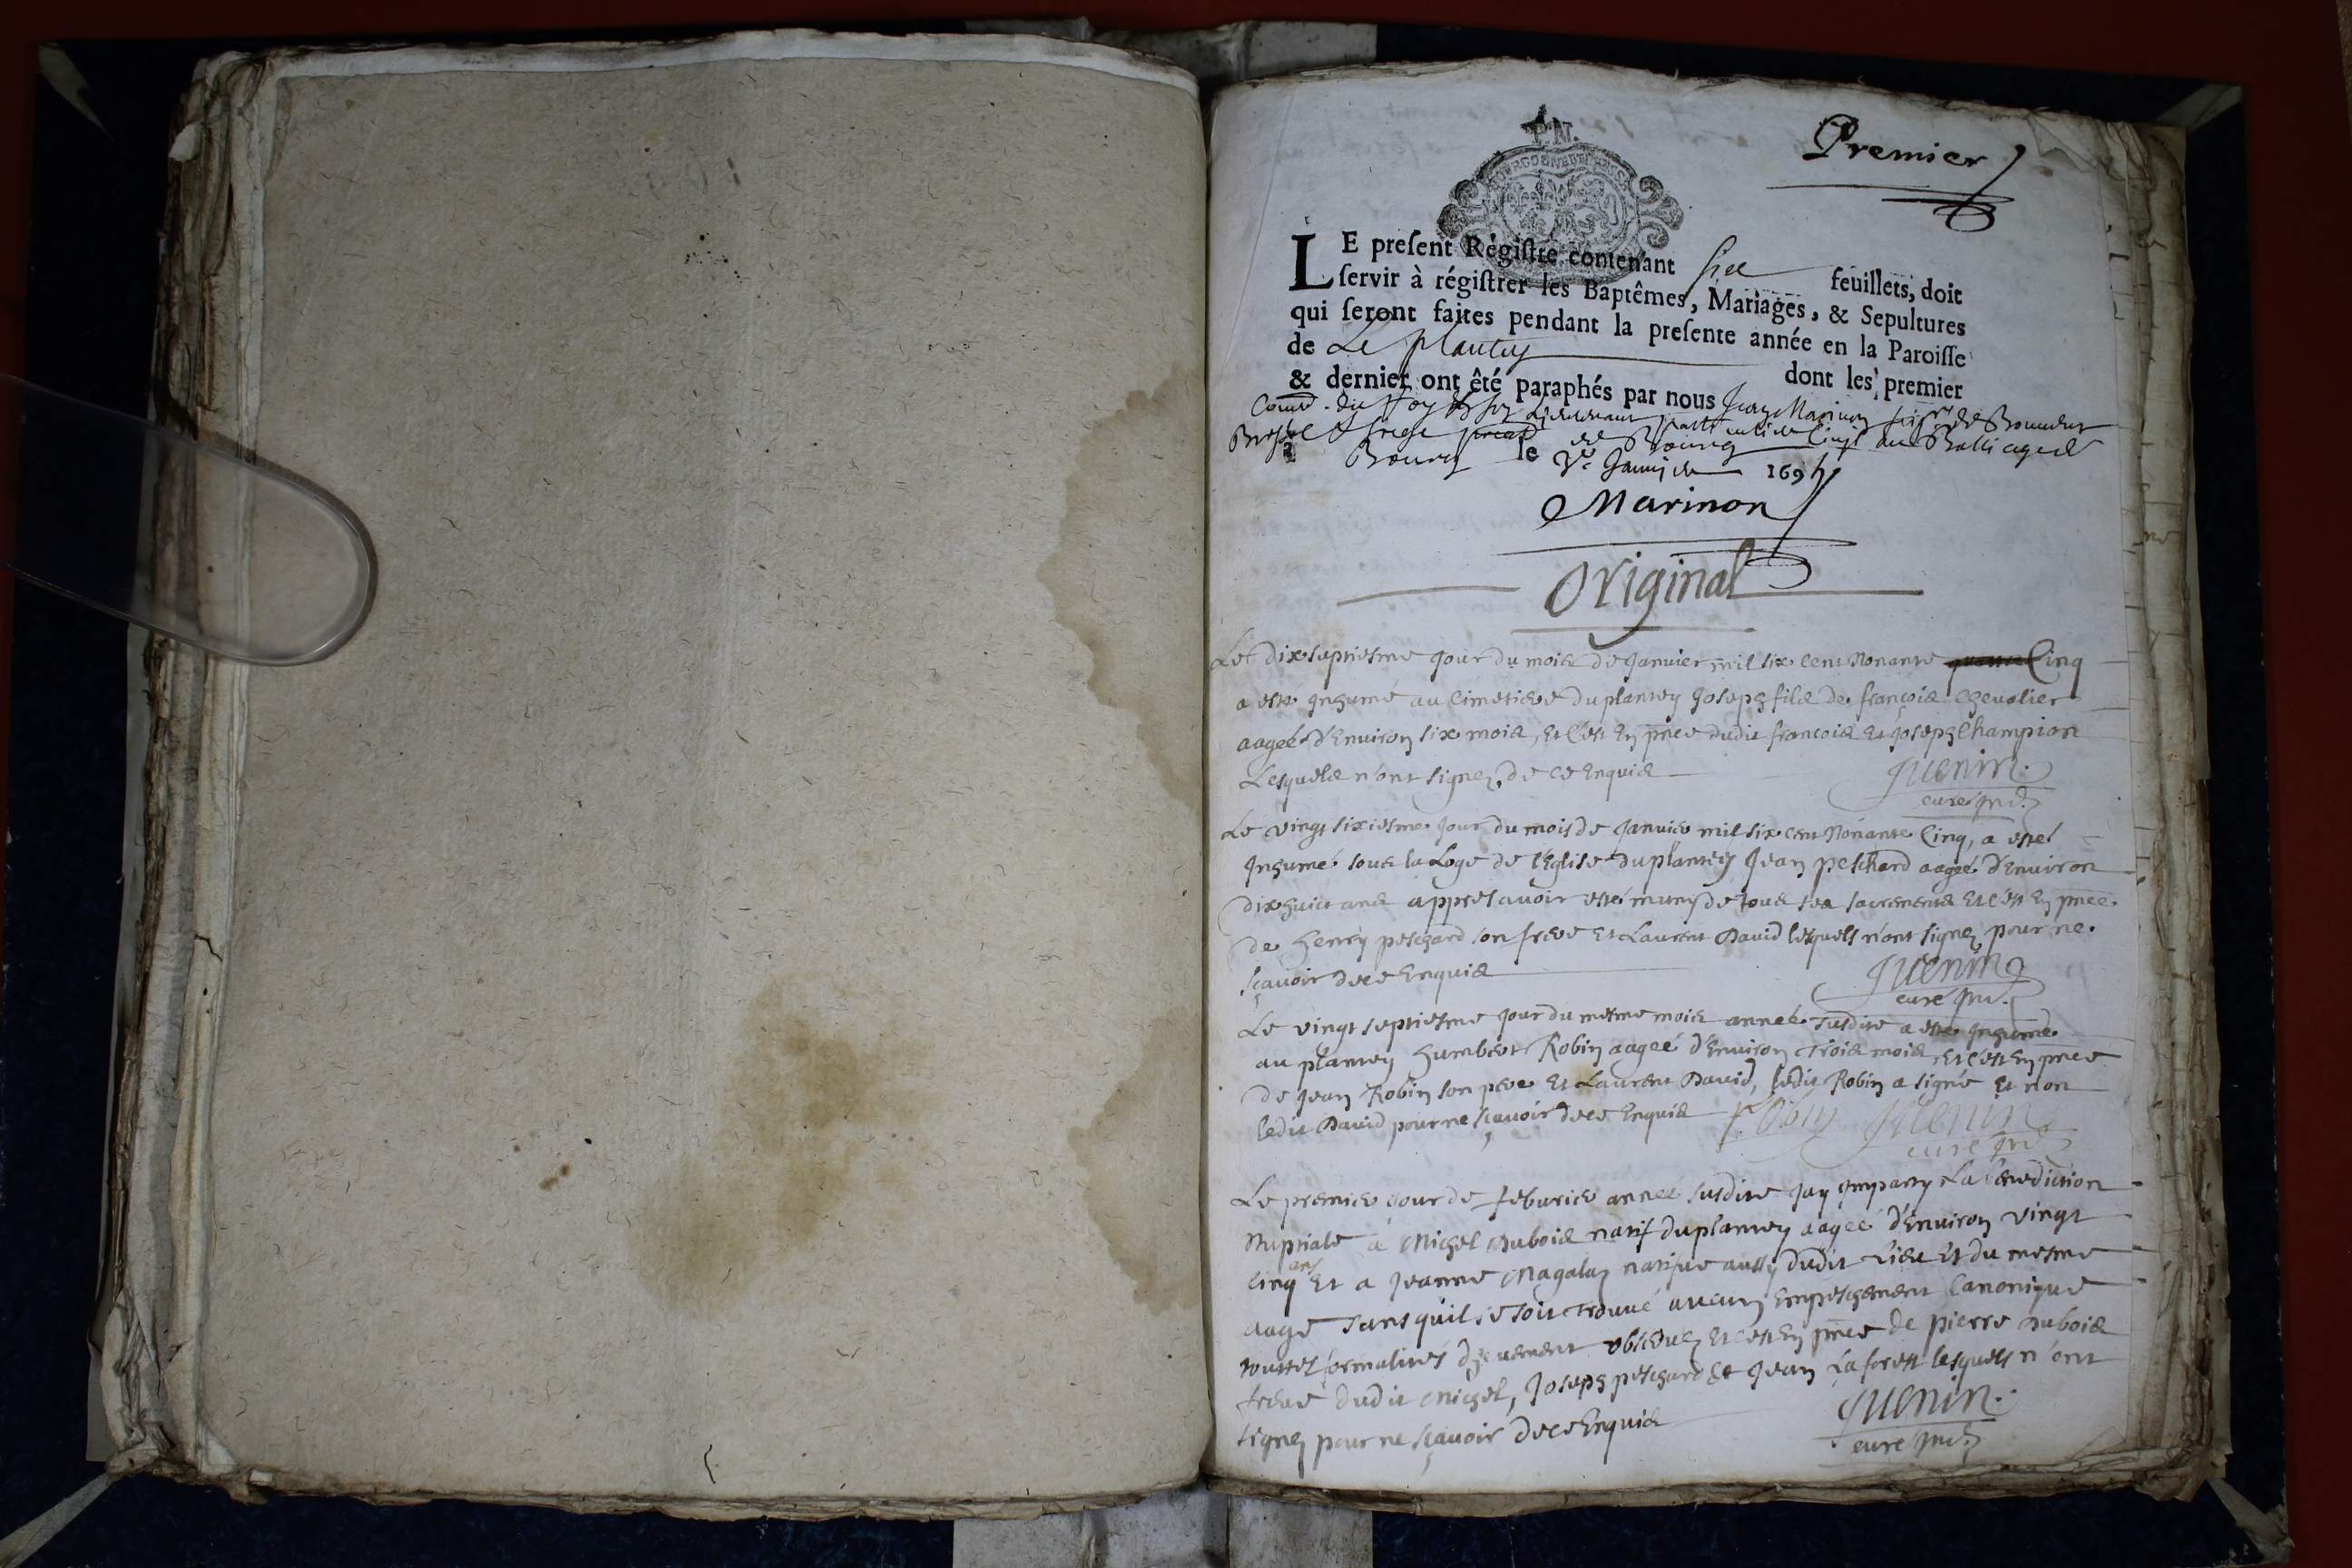 Premier
P.N.
LE preſent Régiſtre contenant six feuillets, doit
ſervir à régiſtrer les Baptêmes, Mariages, & Sepultures
qui ſeront faites pendant la preſente année en la Paroiſſe
de Le plantey dont les premier
& dernier ont été paraphés par nous Jean Marinon
Bourg le Janvier 1695
Marinon
Original
Le dix septiesme jour du mois de Janvier mil six cent Nonante quatre Cinq
a esté Inhumé au Cimetiere du plantey Joseph fils de françois Chevalier
aageé d'Environ six mois, Et c'est En pñce dudit francois Et Joseph Champion
Lesquels n'ont signez de ce Enquis
Juenin.
curé
Le vingt sixiesme jour du mois de Janvier mil six cent Nonante Cinq, a esté
Inhumé sous la Loge de l'Eglise du plantey Jean peschard aageé d'Environ
dix huict ans appres avoir esté muny de tous ses sacrements Et c'est En pñce
de Henry peschard son frere Et Laurent David lesquels n'ont signez pour ne
sçavoir de ce Enquis
Juenin
curé
Le vingt septiesme jour du mesme mois anneé susdite a esté Inhumé
au plantey Humbert Robin aageé d'Environ trois mois, Et c'est En pñce
de Jean Robin son pere Et Laurent David, ledit Robin a signé Et non
ledit David pour ne sçavoir de ce Enquis Robin Juenin
curé
Le premier jour de feburier anneé susdite J'ay Imparty La benediction
Nuptiale à Michel Dubois natif du plantey aageé d'Environ vingt
cinq ans Et a Jeanne Magalan natifue aussy dudit Lieu Et du mesme
aage sans qu'il se soit trouvé aucun Empeschement Canonique
touttes formalités observez Et c'est En pñce de pierre Dubois
frere dudit Michel, Joseph peschard Et Jean Laforest lesquels n'ont
signez pour ne sçavoir de ce Enquis
Juenin.
curé